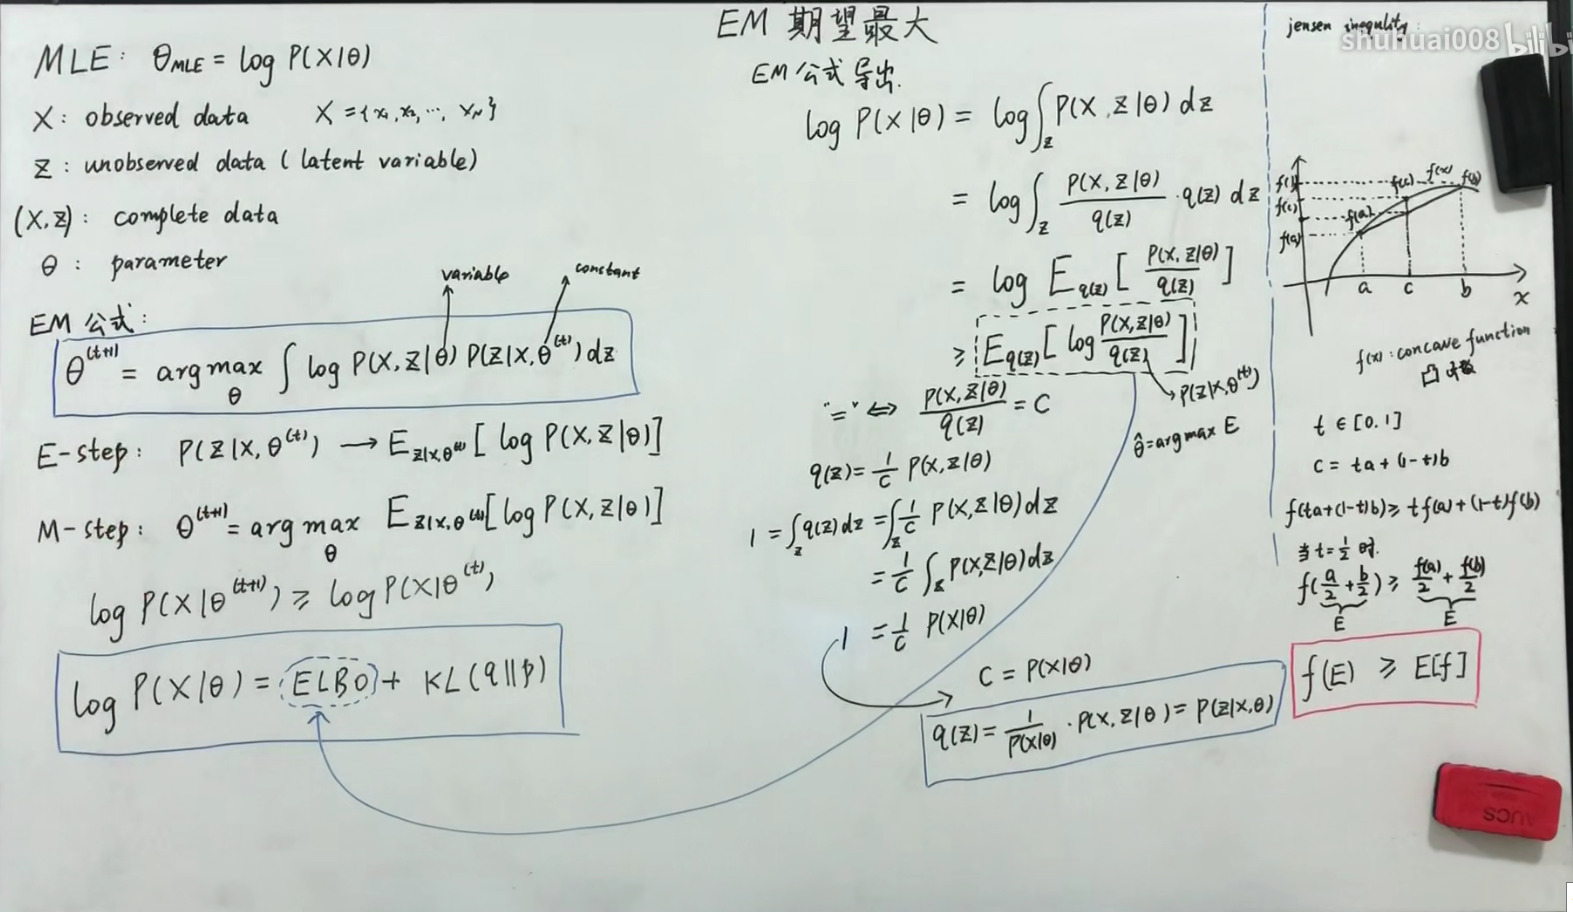 EM 期望最大
MLE: θ_MLE = log P(X|θ)
X: observed data X = {x₁, x₂, ..., x_N}
Z: unobserved data (latent variable)
(X,Z): complete data
θ: parameter
variable
constant
EM 公式:
θ^(t+1) = argmax_θ ∫ log P(X,Z|θ) P(Z|X,θ^(t)) dz
E-step: P(Z|X,θ^(t)) → E_{Z|X,θ^(t)} [log P(X,Z|θ)]
M-step: θ^(t+1) = argmax_θ E_{Z|X,θ^(t)} [log P(X,Z|θ)]
log P(X|θ^(t+1)) ≥ log P(X|θ^(t))
log P(X|θ) = ELBO + KL(q||p)
EM 公式导出.
log P(X|θ) = log ∫_Z P(X,Z|θ) dz
= log ∫_Z P(X,Z|θ)/q(z) · q(z) dz
= log E_{q(z)} [P(X,Z|θ)/q(z)]
≥ E_{q(z)} [log P(X,Z|θ)/q(z)]
P(Z|X,θ^(t))
θ̂ = argmax E
"=" ⇔ P(X,Z|θ)/q(z) = C
q(z) = 1/C P(X,Z|θ)
1 = ∫_Z q(z) dz = ∫_Z 1/C P(X,Z|θ) dz
= 1/C ∫_Z P(X,Z|θ) dz
1 = 1/C P(X|θ)
C = P(X|θ)
q(z) = 1/P(X|θ) · P(X,Z|θ) = P(Z|X,θ)
jensen inequlity:
shuhuai008 bilibi
f(b) f(c) f(a)
f(a) f(c) f(x) f(b)
a c b x
f(x): concave function
凸
t ∈ [0.1]
c = ta + (1-t)b
f(ta+(1-t)b) ≥ tf(a) + (1-t)f(b)
当 t = 1/2 时.
f(a/2 + b/2) ≥ f(a)/2 + f(b)/2
E E
f(E) ≥ E[f]
AUCS